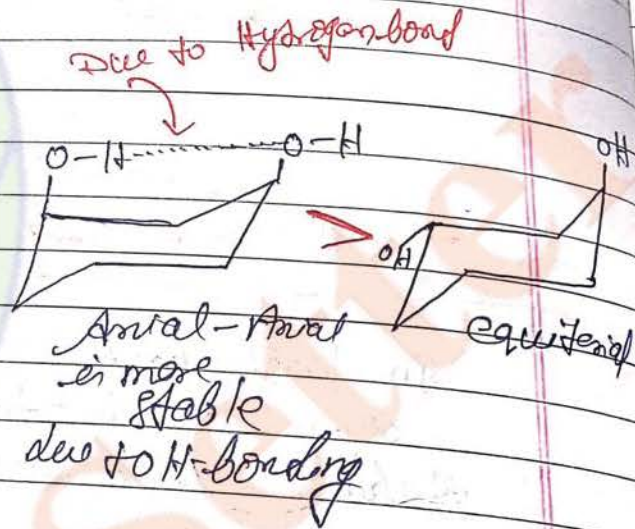 Due to Hydrogen bond
O-H O-H
OH
>
OH
Axial-Axial
is more
stable
due to H-bonding
equiterial